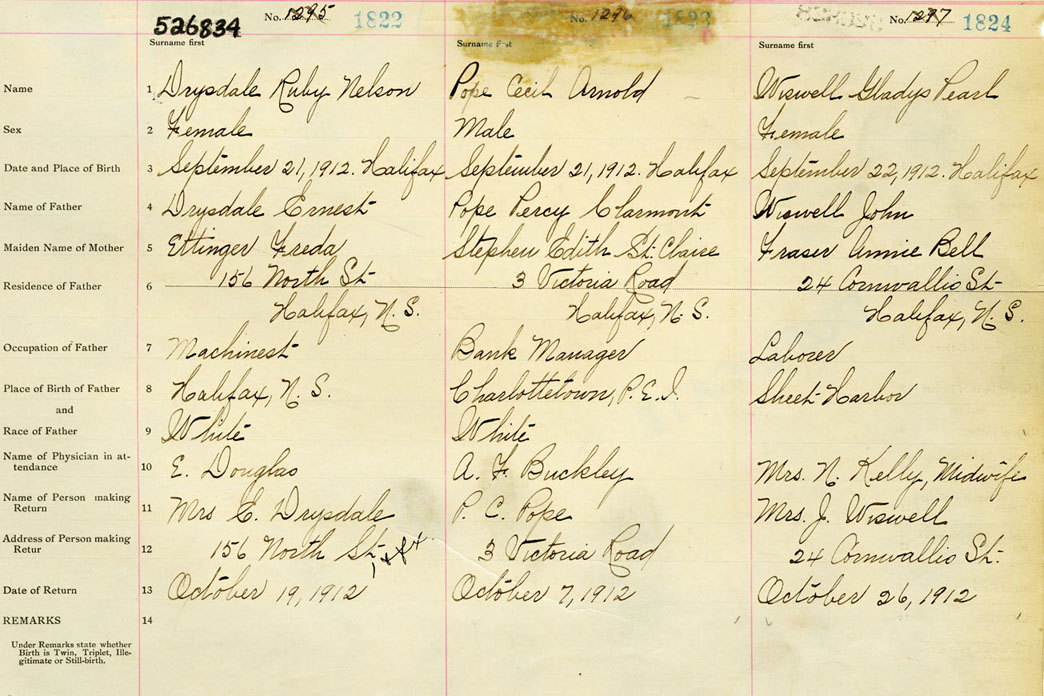 526834 No. 1295 1822 No. 1296 1823 No. 1297 1824
Surname first Surname first Surname first
Name 1 Drysdale Ruby Nelson Pope Cecil Arnold Wiswell Gladys Pearl
Sex 2 Female Male Female
Date and Place of Birth 3 September 21, 1912. Halifax September 21, 1912. Halifax September 22, 1912. Halifax
Name of Father 4 Drysdale Ernest Pope Percy Clarmont Wiswell John
Maiden Name of Mother 5 Ettinger Freda Stephen Edith St. Claire Fraser Annie Bell
Residence of Father 6 156 North St 3 Victoria Road 24 Cornwallis St
Halifax, N.S. Halifax, N.S. Halifax, N.S.
Occupation of Father 7 Machinest Bank Manager Laborer
Place of Birth of Father 8 Halifax, N.S. Charlottetown, P.E.I. Sheet Harbor
and
Race of Father 9 White White
Name of Physician in at-
tendance 10 E. Douglas A. F. Buckley Mrs. N. Kelly, Midwife
Name of Person making
Return 11 Mrs E. Drysdale P. C. Pope Mrs. J. Wiswell
Address of Person making
Retur 12 156 North St 3 Victoria Road 24 Cornwallis St.
Date of Return 13 October 19, 1912 October 7, 1912 October 26, 1912
REMARKS 14
Under Remarks state whether
Birth is Twin, Triplet, Ille-
gitimate or Still-birth.